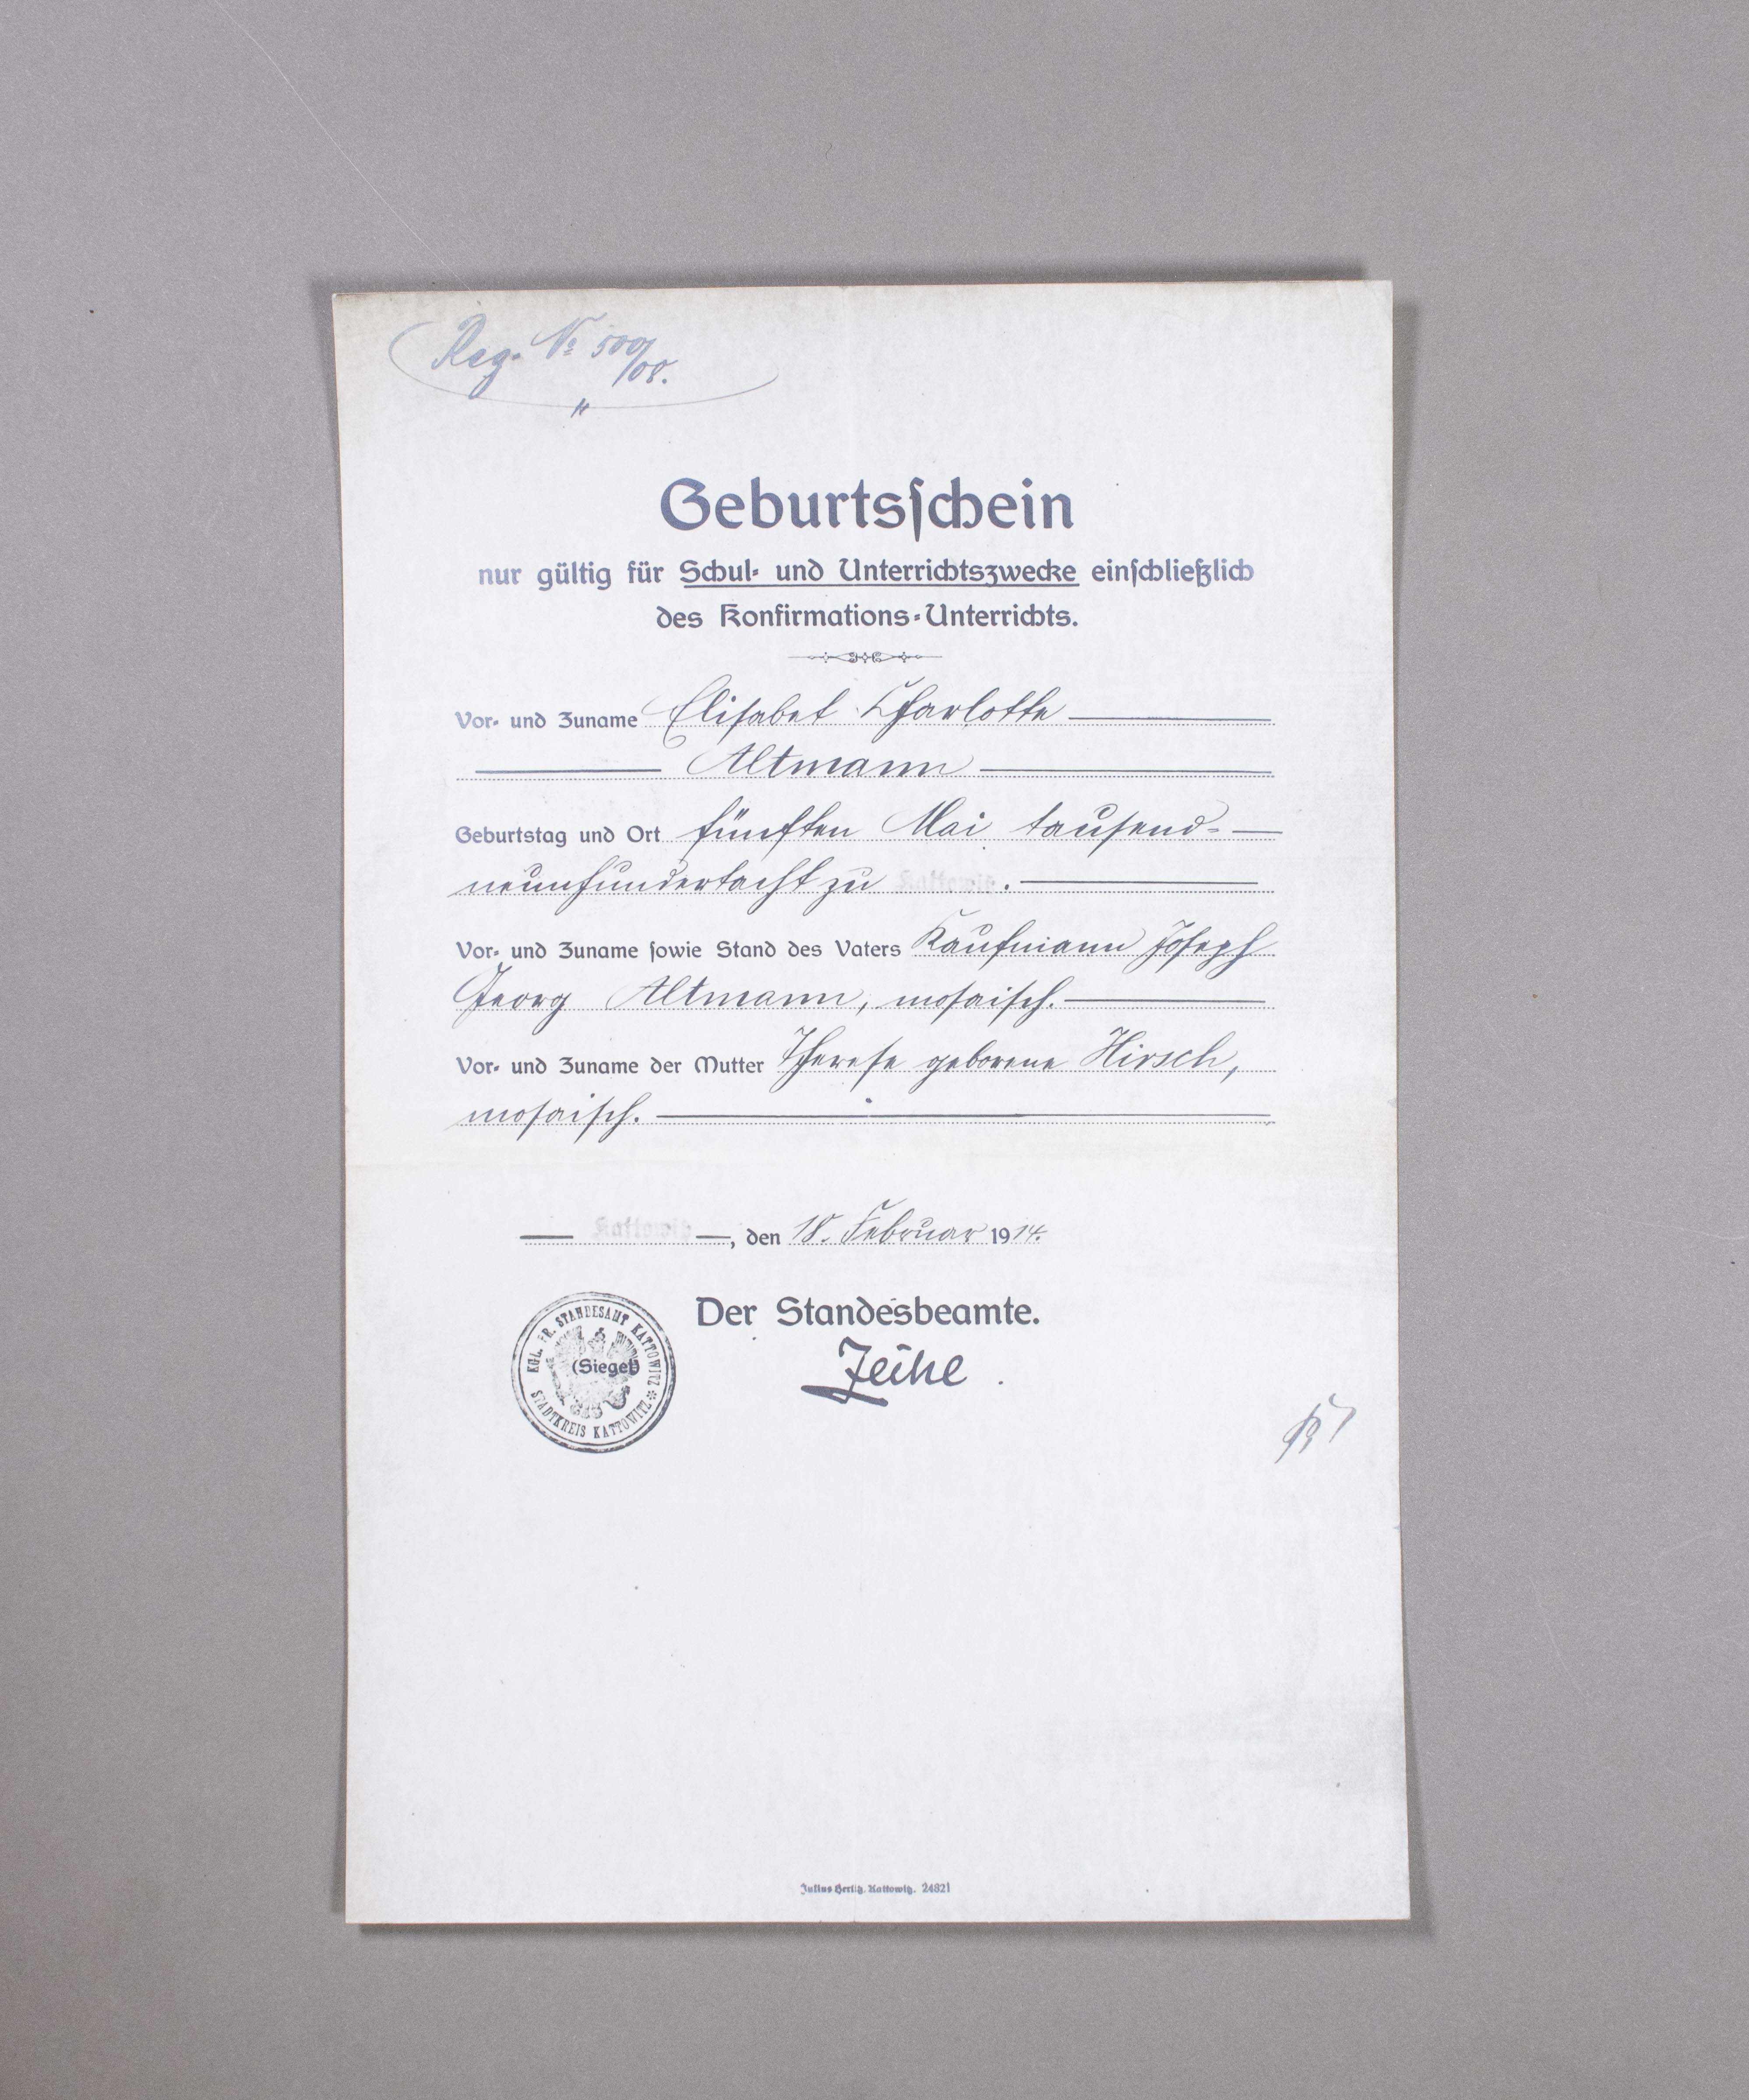 Reg. № 500/08.
Geburtsschein
nur gültig für Schul- und Unterrichtszwecke einschließlich
des Konfirmations-Unterrichts.
Vor- und Zuname Elisabet Charlotte
Altmann
Geburtstag und Ort fünften Mai tausend-
neunhundertacht zu Kattowitz.
Vor- und Zuname sowie Stand des Vaters Kaufmann Joseph
Georg Altmann, mosaisch.
Vor- und Zuname der Mutter Therese geborene Hirsch,
mosaisch.
Kattowitz, den 18. Februar 1914.
Der Standesbeamte.
KGL. PR. STANDESAMT KATTOWITZ
(Siegel)
STADTKREIS KATTOWITZ
Julius Herlitz, Kattowitz. 24821